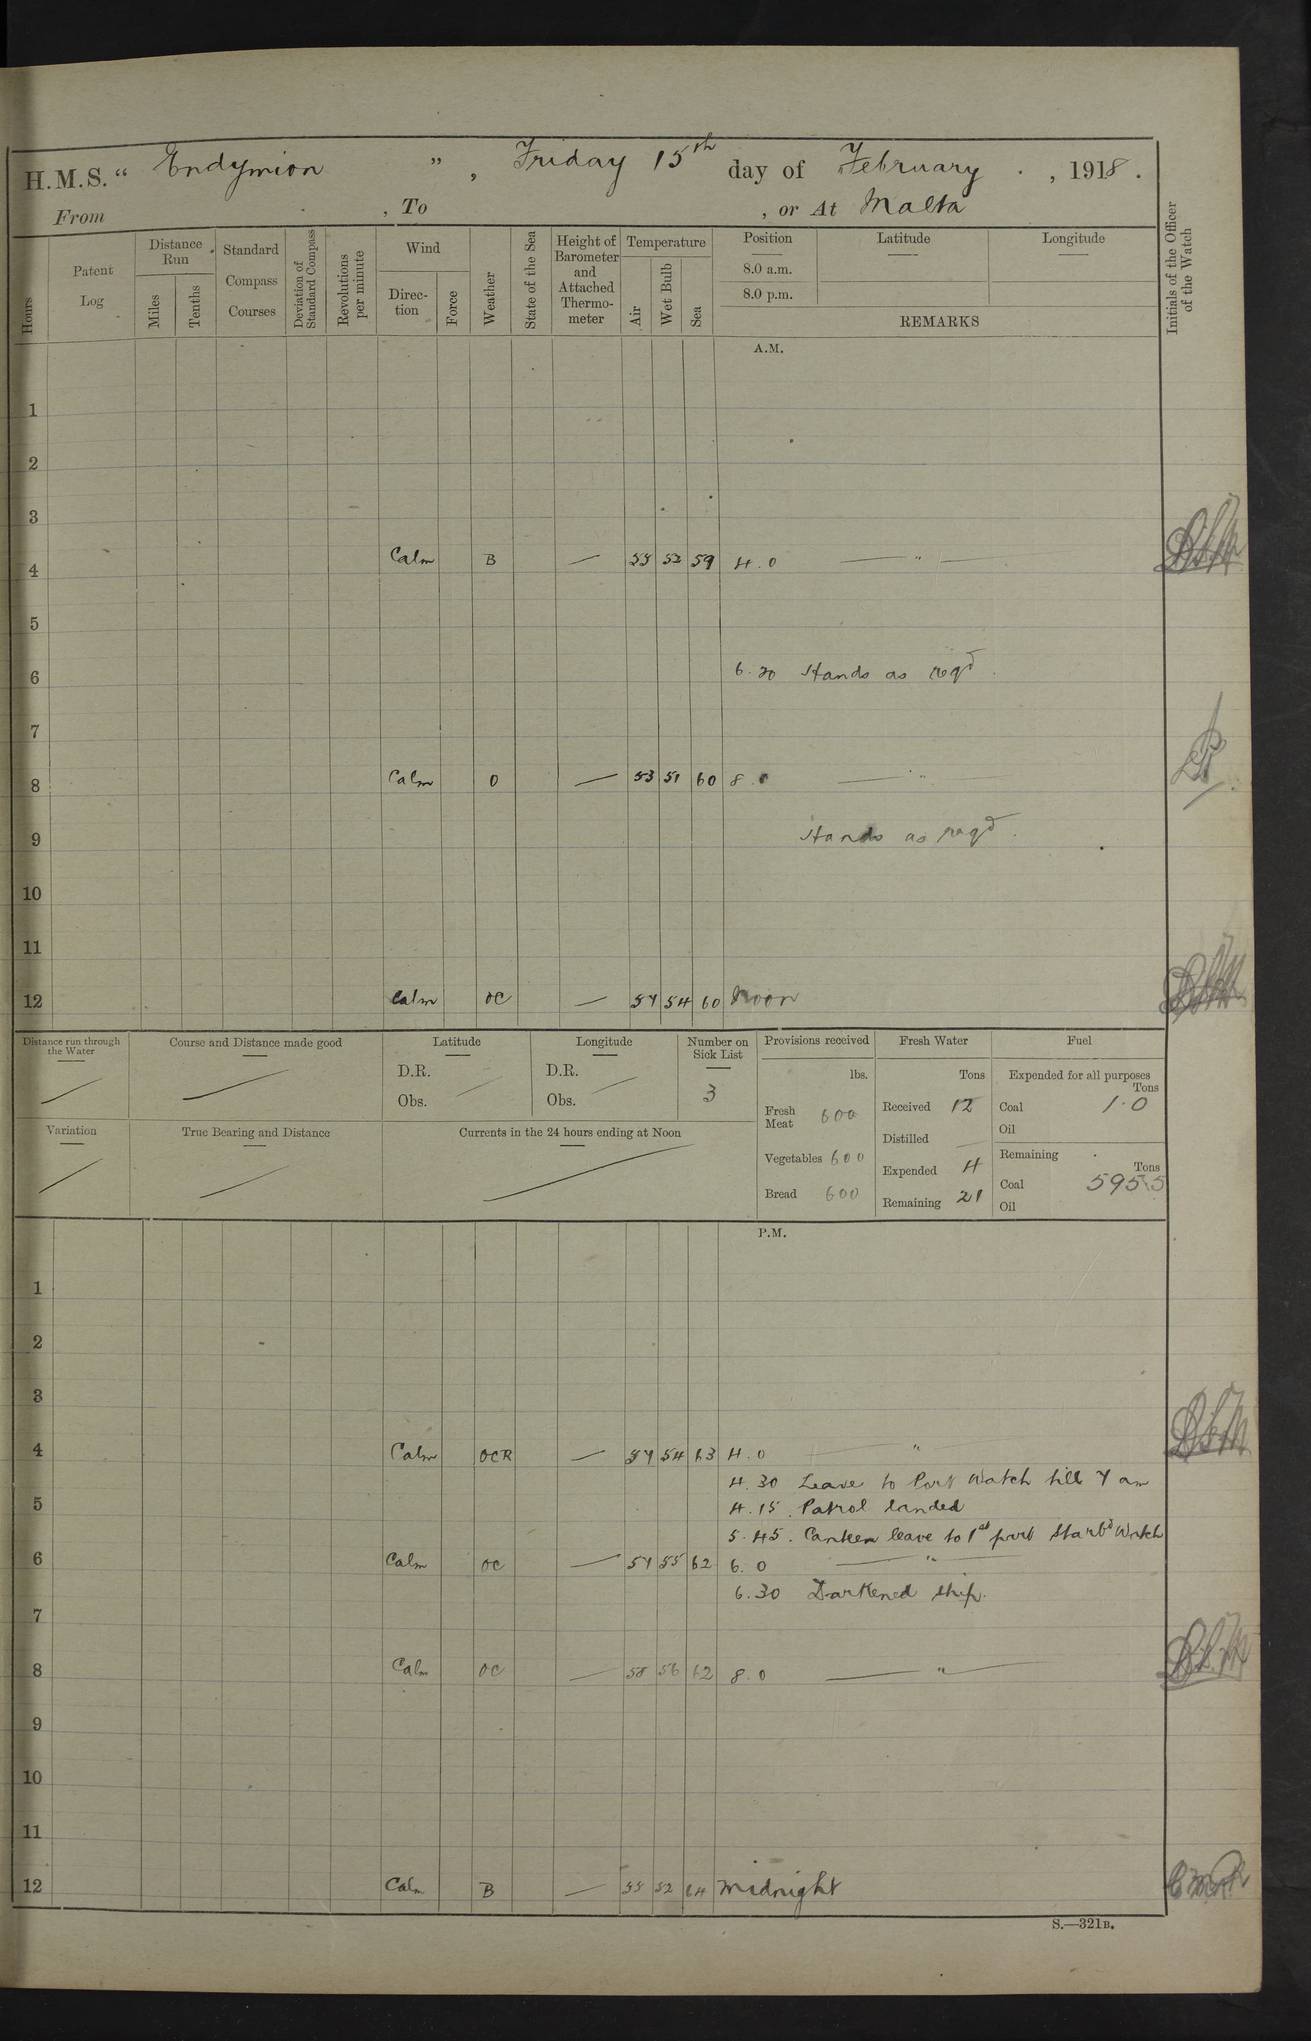 H.M.S. " Endymion ", Friday 15th day of February , 1918.
From , To , or At Malta
Hours
Patent Log
Distance Run
Miles
Tenths
Standard Compass Courses
Deviation of Standard Compass
Revolutions per minute
Wind
Direc-tion
Force
Weather
State of the Sea
Height of Barometer and Attached Thermo-meter
Temperature
Air
Wet Bulb
Sea
Position
8.0 a.m.
8.0 p.m.
Latitude
Longitude
REMARKS
Initials of the Officer of the Watch
A.M.
1
2
3
4 Calm B — 55 53 59 4.0 — " —
5
6 6.30 Hands as reqd.
7
8 Calm O — 53 51 60 8.0 — " —
9 Hands as reqd.
10
11
12 Calm OC — 57 54 60 Noon
Distance run through the Water
Course and Distance made good
Latitude
D.R.
Obs.
Longitude
D.R.
Obs.
Number on Sick List
3
Variation
True Bearing and Distance
Currents in the 24 hours ending at Noon
Provisions received
lbs.
Fresh Meat 600
Vegetables 600
Bread 600
Fresh Water
Tons
Received 12
Distilled —
Expended 4
Remaining 21
Fuel
Expended for all purposes
Tons
Coal 1.0
Oil
Remaining
Tons
Coal 595.5
Oil
P.M.
1
2
3
4 Calm OCR — 57 54 63 4.0 — "
4.30 Leave to Port Watch till 7 am
5 4.15. Patrol landed
5.45. Canteen leave to 1st part Starbd Watch
6 Calm OC — 57 55 62 6.0 — " —
6.30 Darkened ship.
7
8 Calm OC — 58 56 62 8.0 — " —
9
10
11
12 Calm B — 55 52 64 Midnight
S.—321B.